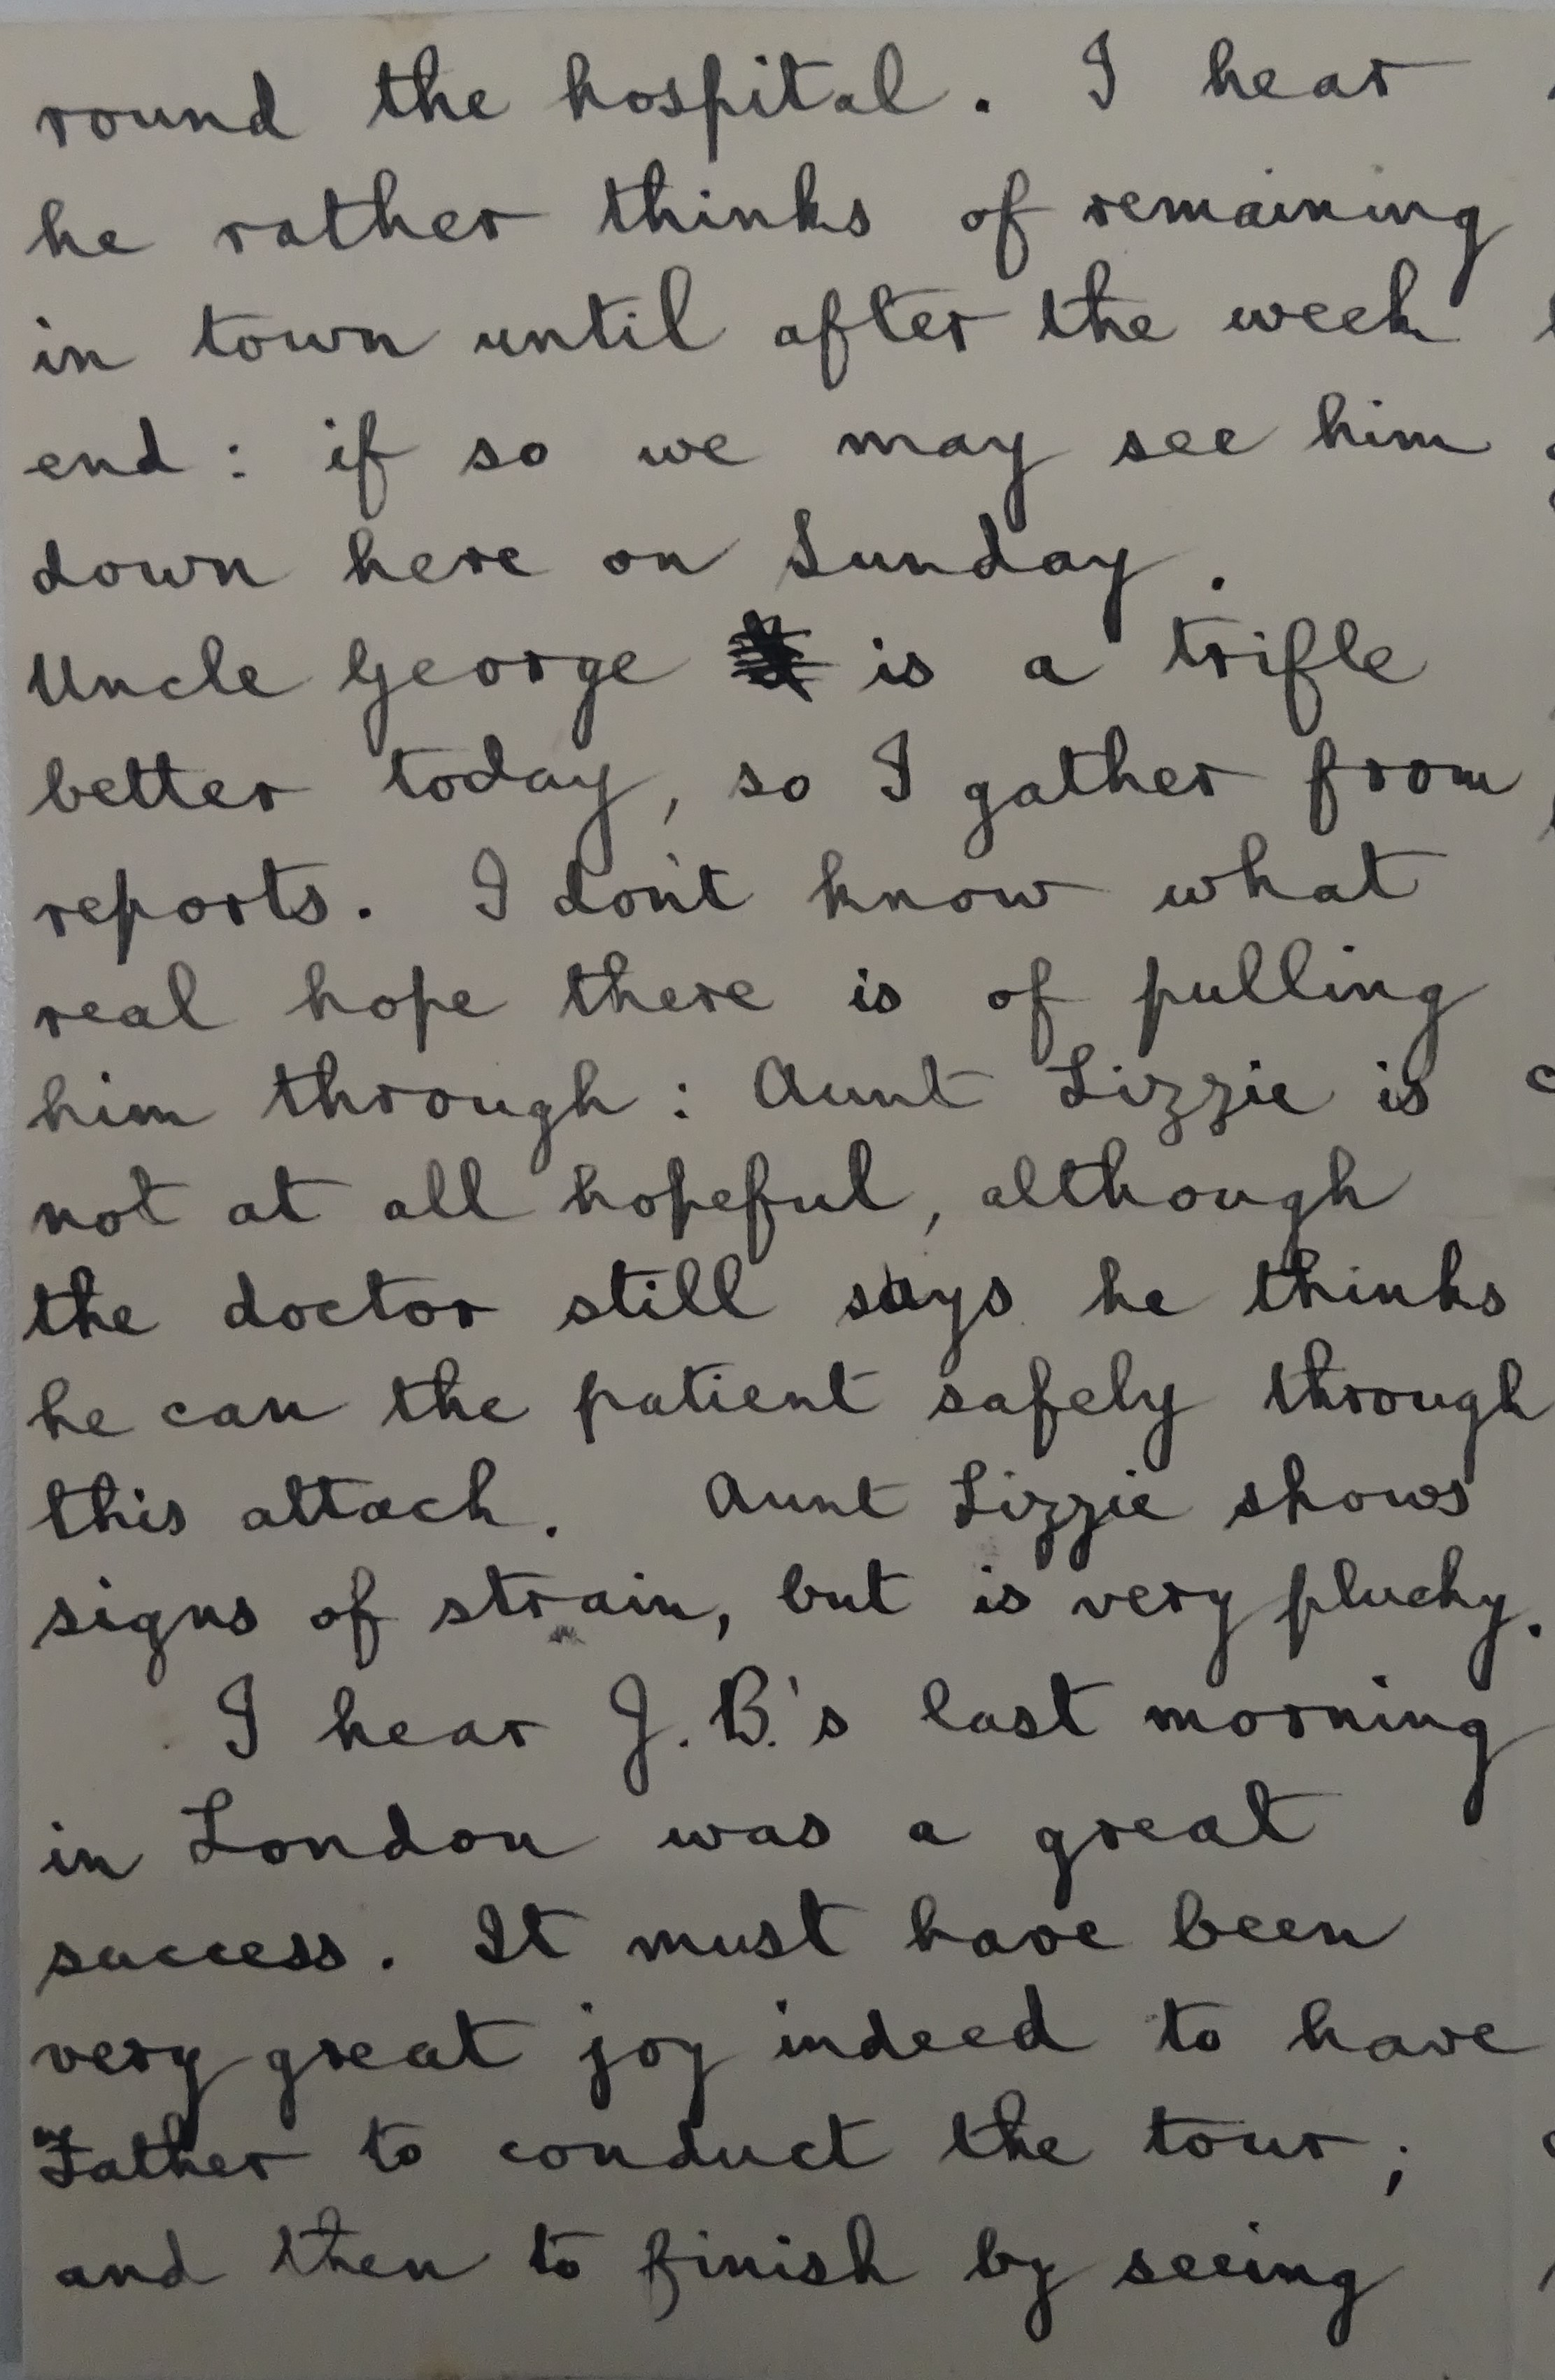 round the hospital. I hear
he rather thinks of remaining
in town until after the week
end: if so we may see him
down here on Sunday.
Uncle George is a trifle
better today, so I gather from
reports. I don't know what
real hope there is of pulling
him through: Aunt Lizzie is
not at all hopeful, although
the doctor still says he thinks
he can the patient safely through
this attack. Aunt Lizzie shows
signs of strain, but is very plucky.
I hear J.B.'s last morning
in London was a great
success. It must have been
very great joy indeed to have
Father to conduct the tour;
and then to finish by seeing